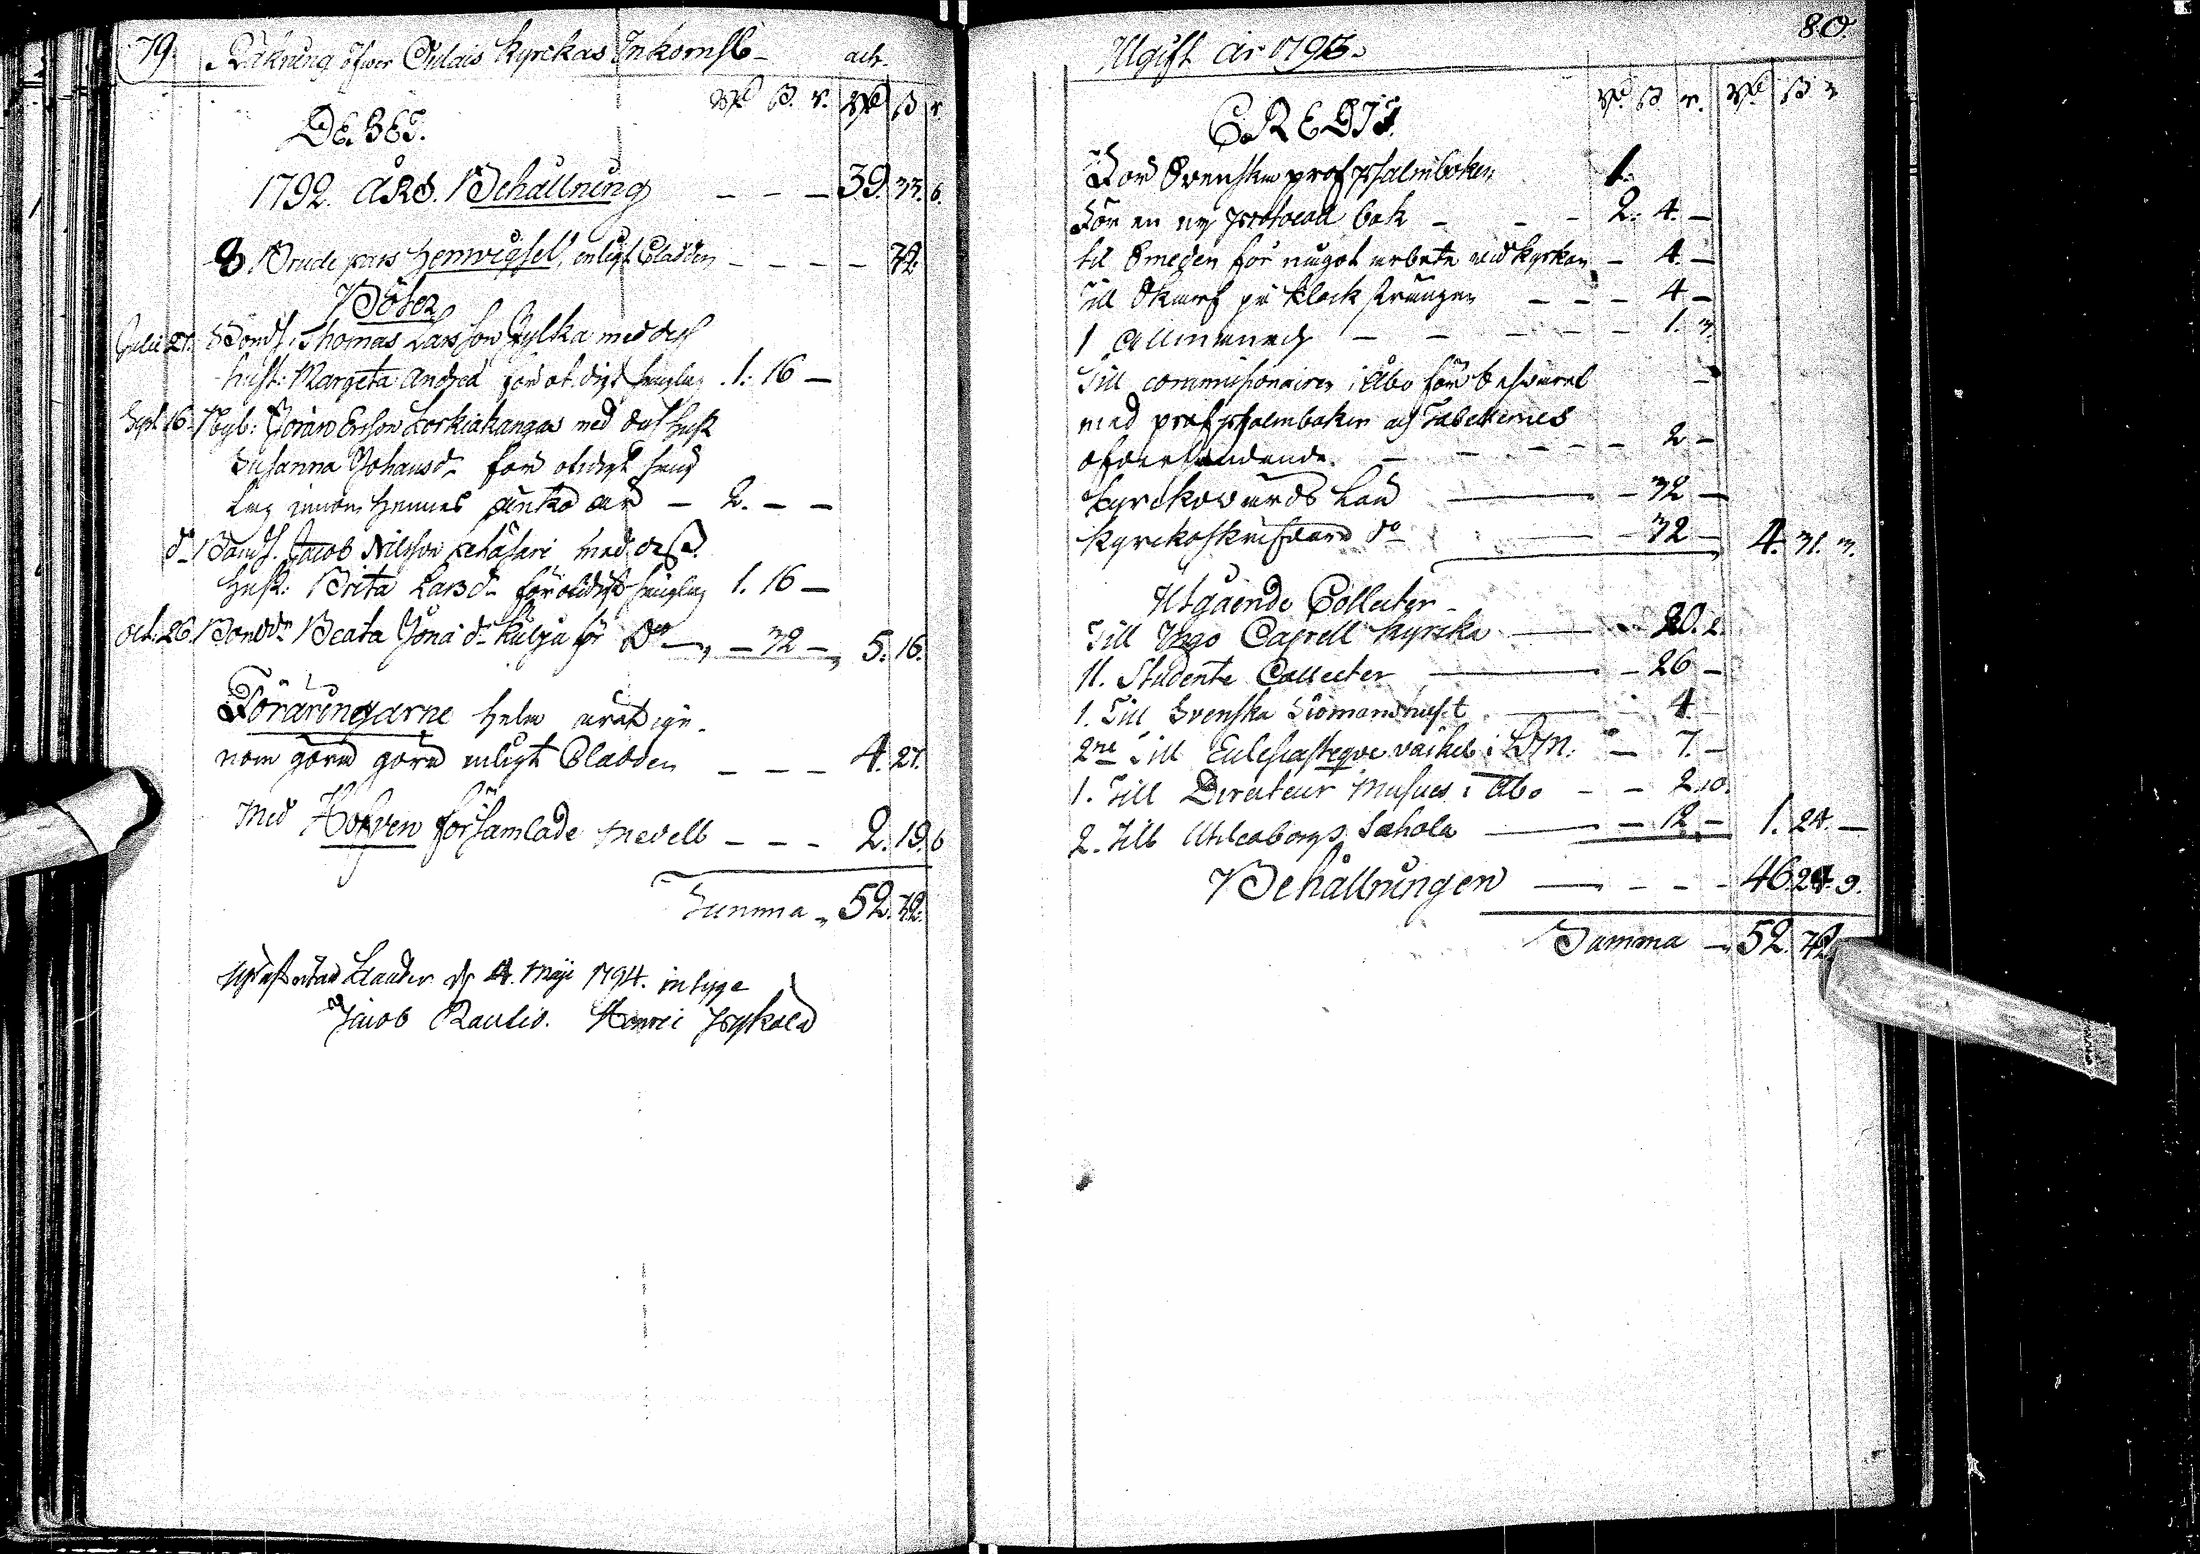 79. Räkning öfwer Oulais Kyrckas Inkomst och
Rd ß. r. Rd ß r.
DEBET.
1792. ÅRS. Behållning - - - 39. 33. 6.
8 Brudepars Hemwigsel, enligt Cladden - - - - 32.
Böter
Julii 21. Bonds. Thomas Larsson Jylkä med dess
hust: Margeta Andersd för otidigt sänglag. 1. 16 -
Sept. 16. Nbgb: Göran Ersson Korkiakangas med dess hust
Susanna Johansd:r för otidigt säng
lag innom hennes änko år - 2. - -
d:o Bonds. Jacob Nilsson med dess
hust: Brita Larsd:r för otidigt sänglag 1. 16 -
Oct: 26. Bondd:r Beata Jonæ d:r för D:o - - 32 - 5. 16.
Föräringarne hela året ige-
nom gård gård enligt Cladden - - - 4. 27.
Med Hofven församlade medell - - - 2. 19. 6
Summa - 52. 42.
Upläst uti Laudis d. 4. Maji 1794. intyga
Jacob Rautio. Henric Pyykölä
80.
Utgift år 1793.
Rd ß r. Rd ß r
CREDIT.
För Svenska prof psalmboken 1.
För en ny protocoll bok - - - 2. 4. -
til Smeden för något arbete vid kyrkan - 4. -
Till Skarf på klock stången - - - 4 -
1 Allmanach - - - - - 1. 3.
Till commissionairen i Åbo för besväret
med prof psalmboken och Tabellernes
öfversändande - - - - - 2 -
Kyrckovärds Lön - 32 -
Kyrckoskrifvare D:o - 32 - 4. 31. 3.
Utgående Collecter
Till Ingo Capell Kyrcka - 20. 2.
11. Studente Collecter - 26 -
1. Till Svenska Siömanshuset - 4.
2:ne Till Ecclesiastique värket i D.M. - 7. -
1. Till Directeur Musices i Åbo - - 2. 10.
2. Till Uhleåborgs Schola - 12 - 1. 24. -
Behållningen - - - 46. 24. 9.
Summa - 52. 42.